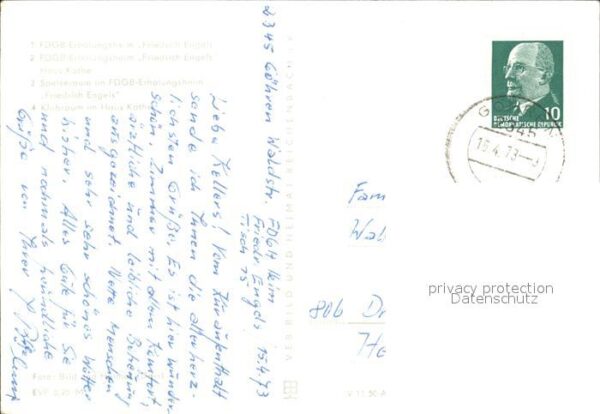 1 FDGB-Erholungsheim „Friedrich Engels“
2 FDGB-Erholungsheim „Friedrich Engels“
Haus Käthe
3 Speiseraum im FDGB-Erholungsheim
„Friedrich Engels“
4 Klubraum im Haus Käthe
2345 Göhren Waldstr. FDGB Heim
Friedr. Engels
Tisch 15 15.4.73
Liebe Kellers! Vom Kuraufenthalt
sende ich Ihnen die allerherz-
lichsten Grüße. Es ist hier wunder-
schön. Zimmer mit allem Komfort,
ärztliche und leibliche Betreuung
ausgezeichnet. Nette Menschen
und sehr sehr schönes Wetter
bisher. Alles Gute für Sie
und nochmals freundliche
Grüße von Ihrer
VEB BILD UND HEIMAT REICHENBACH
Foto: Bild
EVP 0,20 M
V 11 50 A
10
DEUTSCHE
DEMOKRATISCHE REPUBLIK
15.4.73
Fam
Wal
806 Dr
privacy protection
Datenschutz